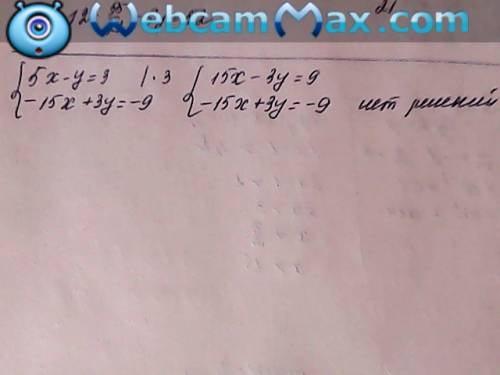 WebcamMax.com
{5x - y = 3 | · 3 {15x - 3y = 9
{-15x + 3y = -9 {-15x + 3y = -9 нет решений